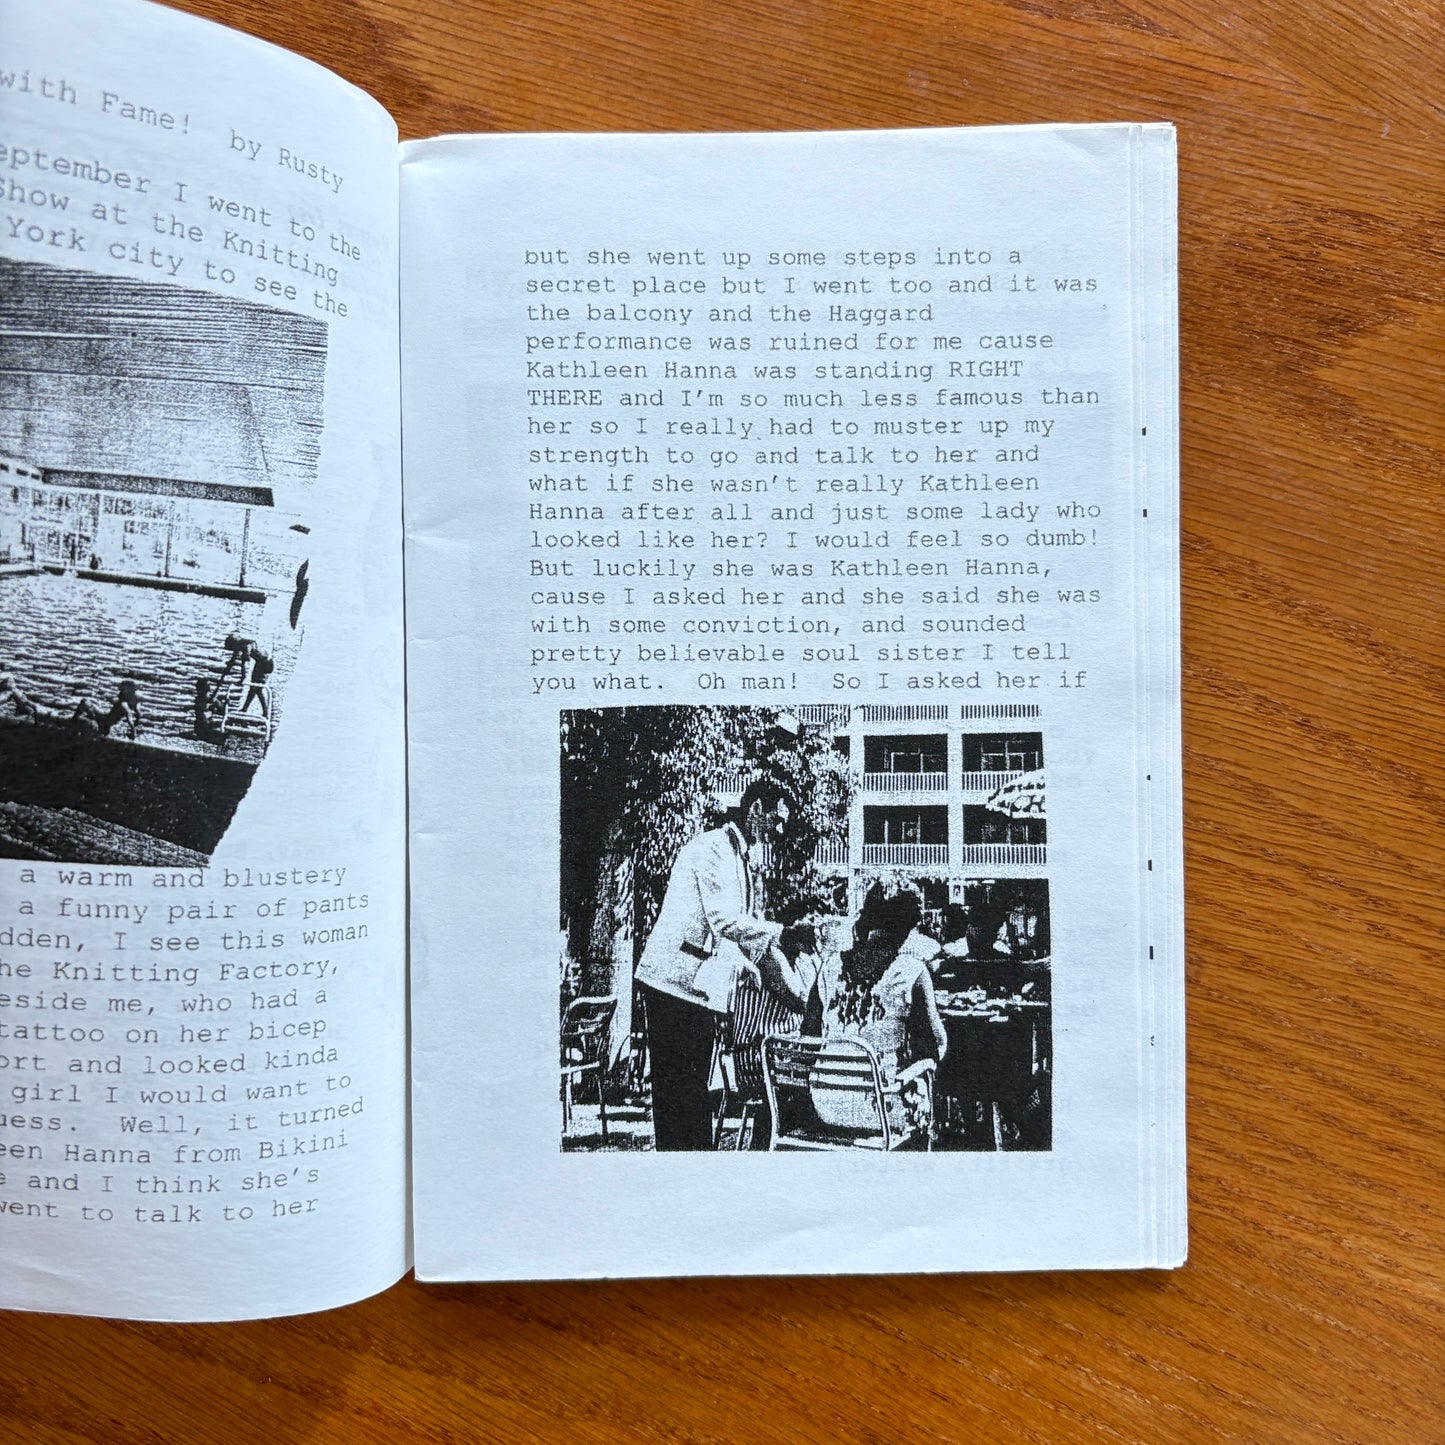 with Fame!  by Rusty
eptember I went to the
Show at the Knitting
York city to see the
a warm and blustery
a funny pair of pants
dden, I see this woman
he Knitting Factory,
eside me, who had a
tattoo on her bicep
ort and looked kinda
girl I would want to
uess.  Well, it turned
een Hanna from Bikini
e and I think she's
went to talk to her
but she went up some steps into a
secret place but I went too and it was
the balcony and the Haggard
performance was ruined for me cause
Kathleen Hanna was standing RIGHT
THERE and I'm so much less famous than
her so I really had to muster up my
strength to go and talk to her and
what if she wasn't really Kathleen
Hanna after all and just some lady who
looked like her? I would feel so dumb!
But luckily she was Kathleen Hanna,
cause I asked her and she said she was
with some conviction, and sounded
pretty believable soul sister I tell
you what.  Oh man!  So I asked her if